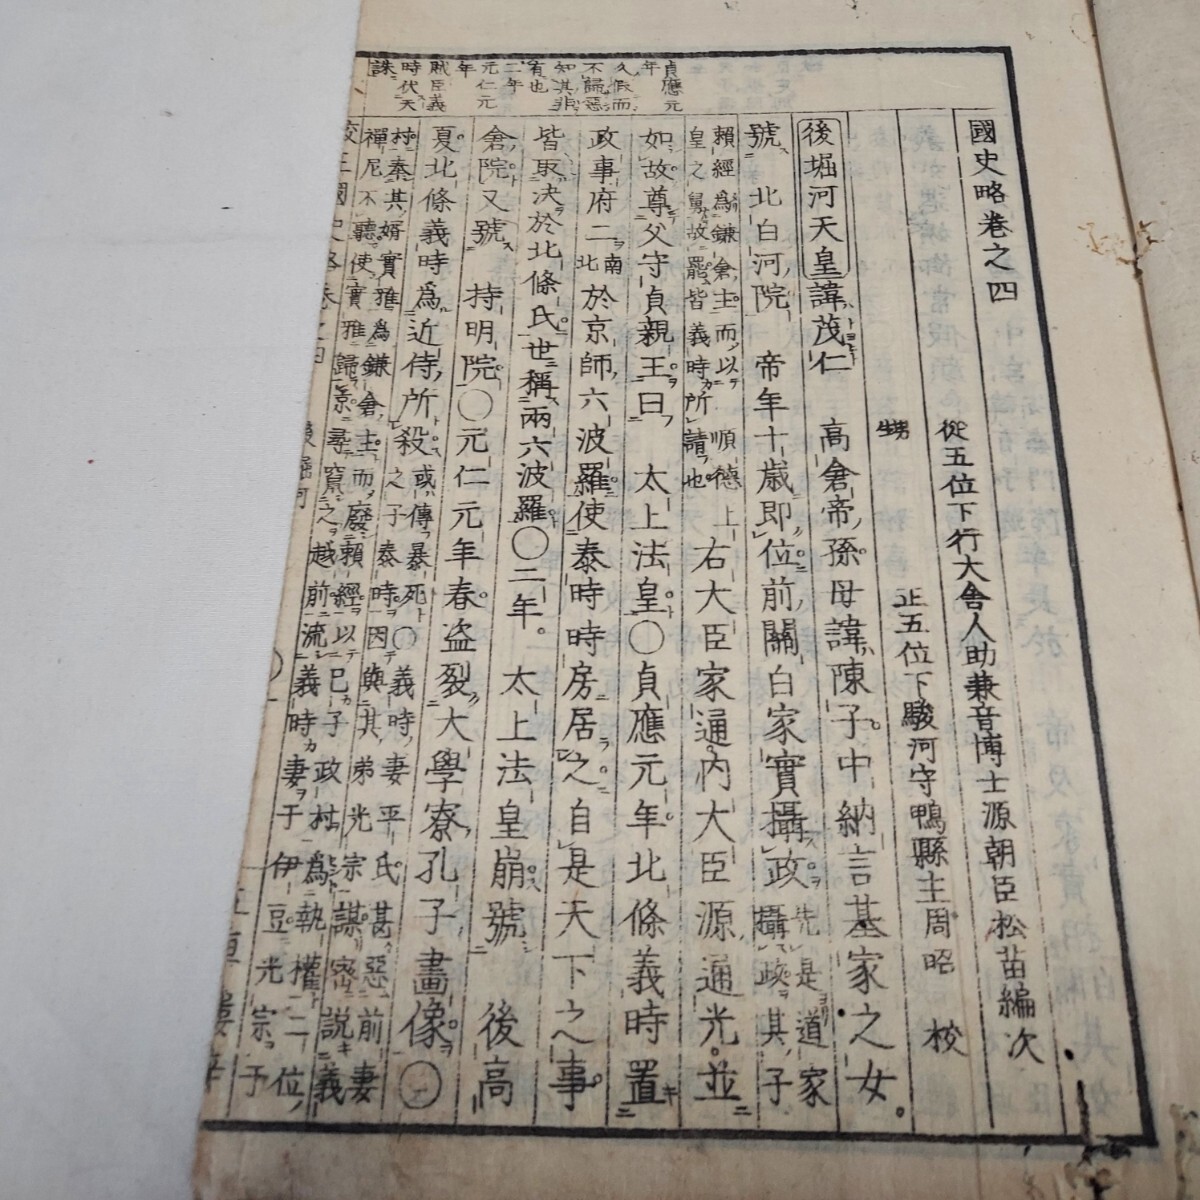 國史略卷之四
從五位下行大舍人助兼音博士源朝臣松苗編次
甥 正五位下駿河守鴨縣主周昭 校
後堀河天皇諱茂仁 高倉帝孫母諱陳子中納言基家之女。
號 北白河院 帝年十歲即位前關白家實攝政先是道家攝政其子
賴經爲鎌倉主而以 順德上皇之舅故罷皆義時所請也 右大臣家通內大臣源通光並
如故尊父守貞親王曰 太上法皇〇貞應元年北條義時置
政事府二南北於京師六波羅使泰時時房居之自是天下之事
皆取決於北條氏世稱兩六波羅〇二年。 太上法皇崩號 後高
倉院又號 持明院〇元仁元年春盜裂大學寮孔子畫像〇
夏北條義時爲近侍所殺或傳暴死〇義時妻平氏甚惡前妻
之子泰時因與其弟光宗謀密說義
村泰其婿實雅爲鎌倉主而廢賴經以己子政村爲執權二位
禪尼不聽使實雅歸京尋竄之越前流義時妻于伊豆光宗于
貞應元年
久假而
不歸惡
知其非
有也
二年
元仁元
年
賊臣義
時伏天
誅